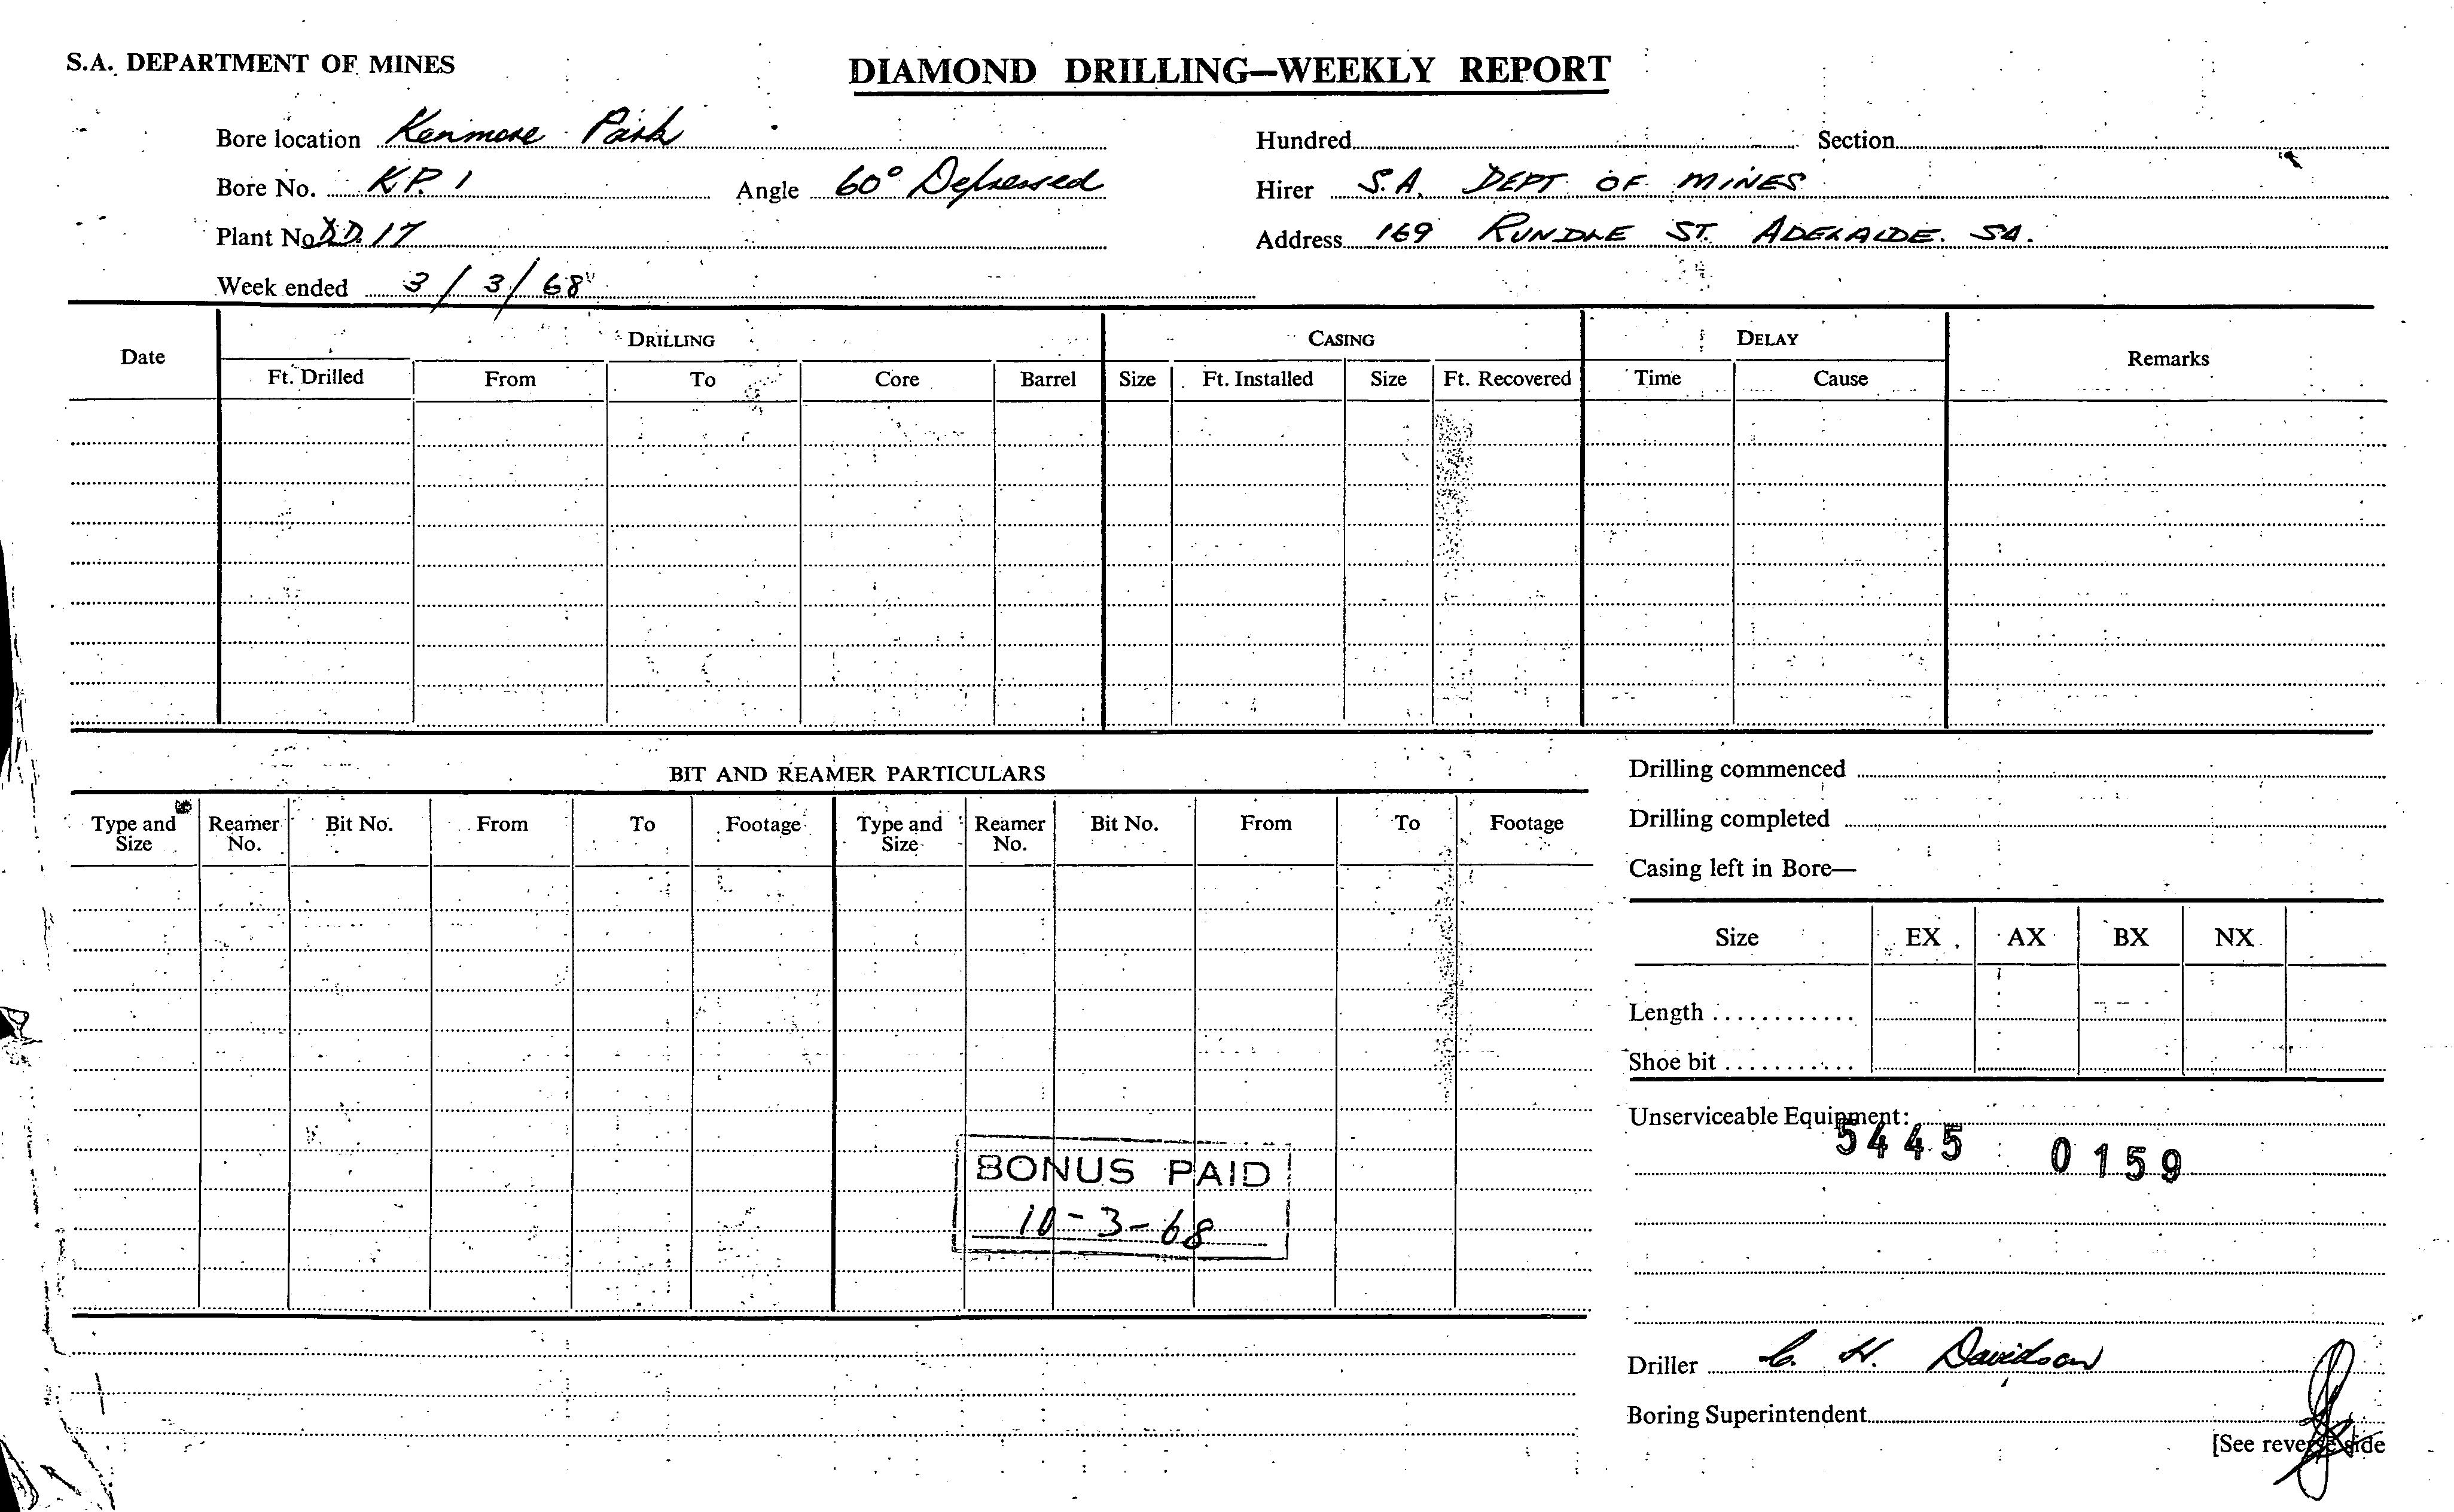 S.A. DEPARTMENT OF MINES
DIAMOND DRILLING—WEEKLY REPORT
Bore location Kenmore Park
Hundred Section
Bore No. K.P. 1 Angle 60° Depressed
Hirer S.A. DEPT OF MINES
Plant No D.D. 17
Address 169 RUNDLE ST. ADELAIDE. SA.
Week ended 3/3/68
Date DRILLING CASING DELAY Remarks
Ft. Drilled From To Core Barrel Size Ft. Installed Size Ft. Recovered Time Cause
BIT AND REAMER PARTICULARS
Type and Size Reamer No. Bit No. From To Footage Type and Size Reamer No. Bit No. From To Footage
Drilling commenced
Drilling completed
Casing left in Bore—
Size EX AX BX NX
Length
Shoe bit
Unserviceable Equipment:
5445 0159
BONUS PAID
10-3-68
Driller C. H. Davidson
Boring Superintendent
[See reverse side